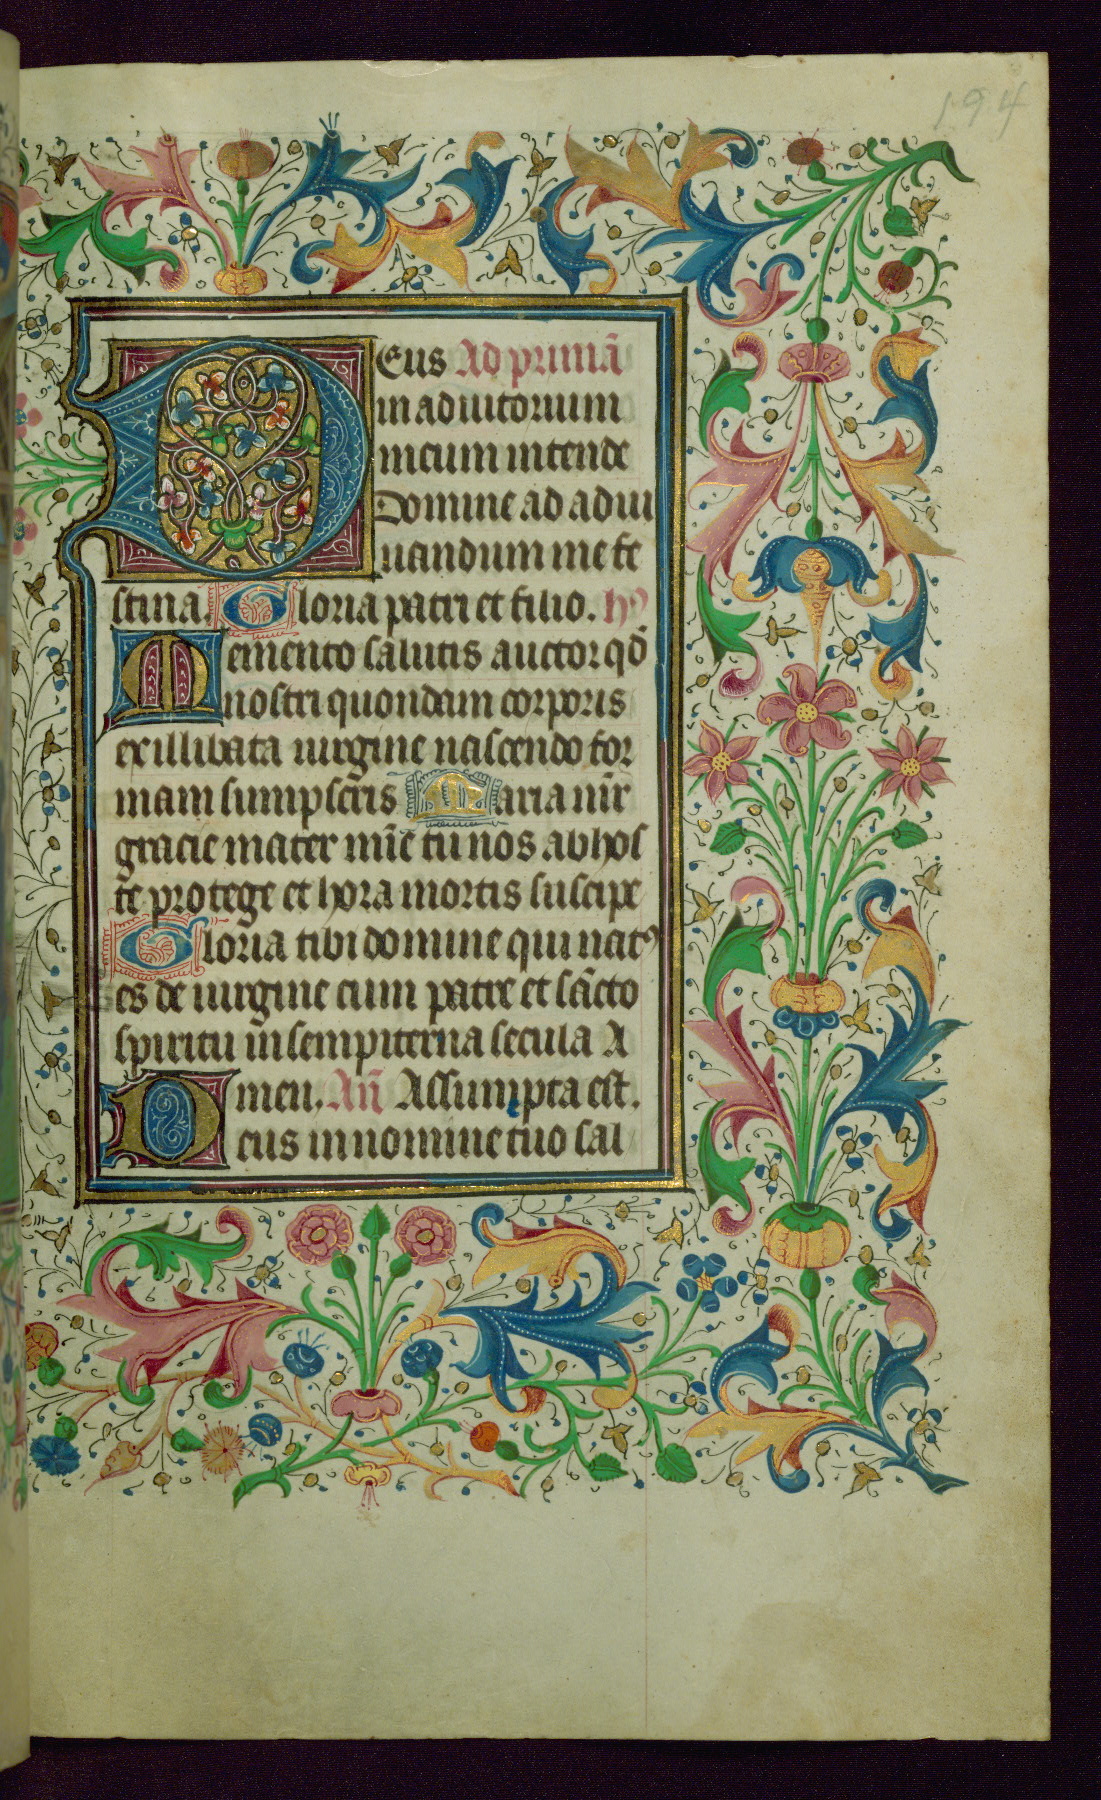 194
Deus Ad primā
in adiutorium
meum intende
Domine ad adiu
uandum me fe
stina. Gloria patri et filio. hꝰ
Memento salutis auctor qd̄
nostri quondam corporis
ex illibata uirgine nascendo for
mam sumpseris Maria mr̄
gracie mater mīe tu nos ab hos
te protege et hora mortis suscipe
Gloria tibi domine qui natꝰ
es de uirgine cum patre et sācto
spiritu in sempiterna secula A
men. An̄ Assumpta est.
Deus in nomine tuo sal